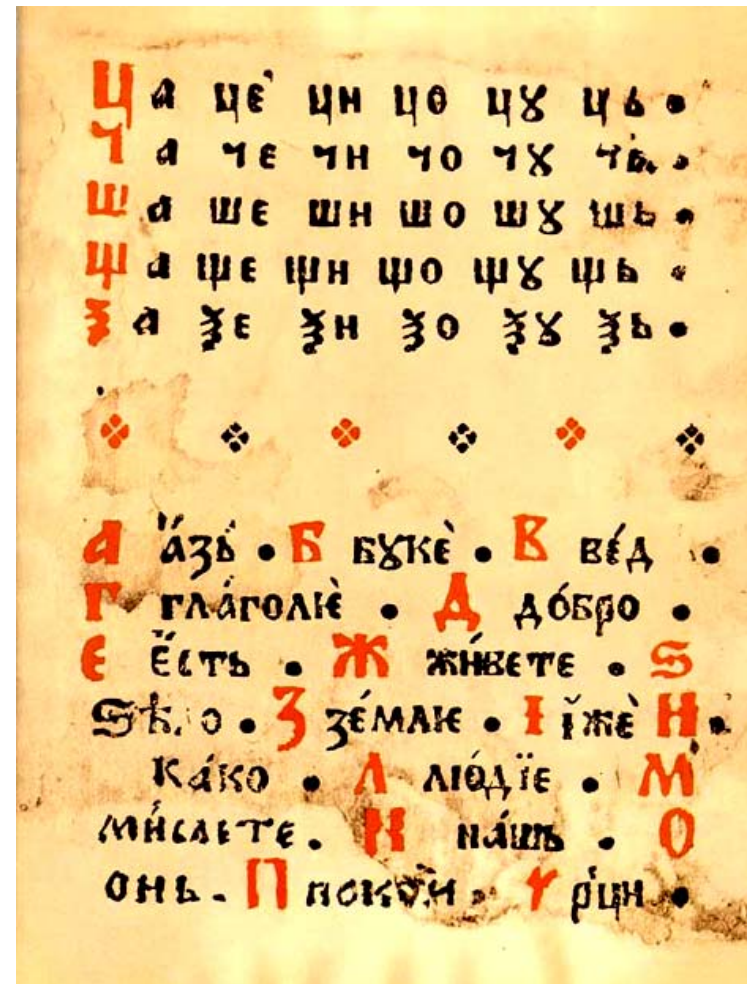 Ц а цѐ ци цо цꙋ ць •
Ч а че чи чо чꙋ чь •
Ш а ше ши шо шꙋ шь •
Щ а ще щи що щꙋ щь •
Ѯ а ѯе ѯи ѯо ѯꙋ ѯь •
А а҆́зь • Б бꙋкѐ • В ве́д •
Г гла́голѥ̀ • Д до́бро •
Е є҆́сть • Ж жи́вете • Ѕ
• З зе́млѥ • І їжѐ И •
ка́ко • Л лю́дїе • М
ми́слете. Н на́шь • О
онь. П покои • р́ци •